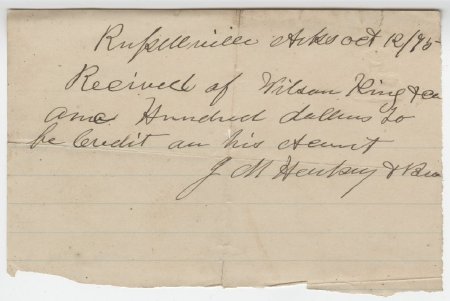 Russellville Arks Oct 12/95
Recived of Wilson King & co
one Hundred dollars to
be Credit on his
J M & Bro